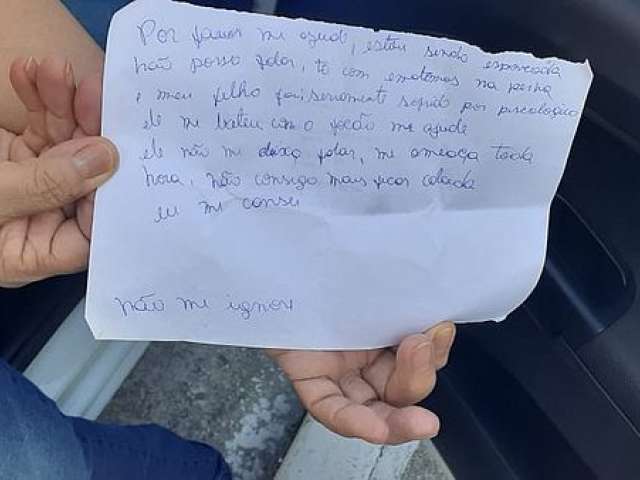 Por favor me ajude, estou sendo espancada
não posso falar, to com ematomas na perna
e meu filho fassicamente sofrido por psicologico
ele me bateu com o facão me ajude
ele não me deixa falar, me ameaça toda
hora, não consigo mais ficar calada
eu me cansei
não me ignore